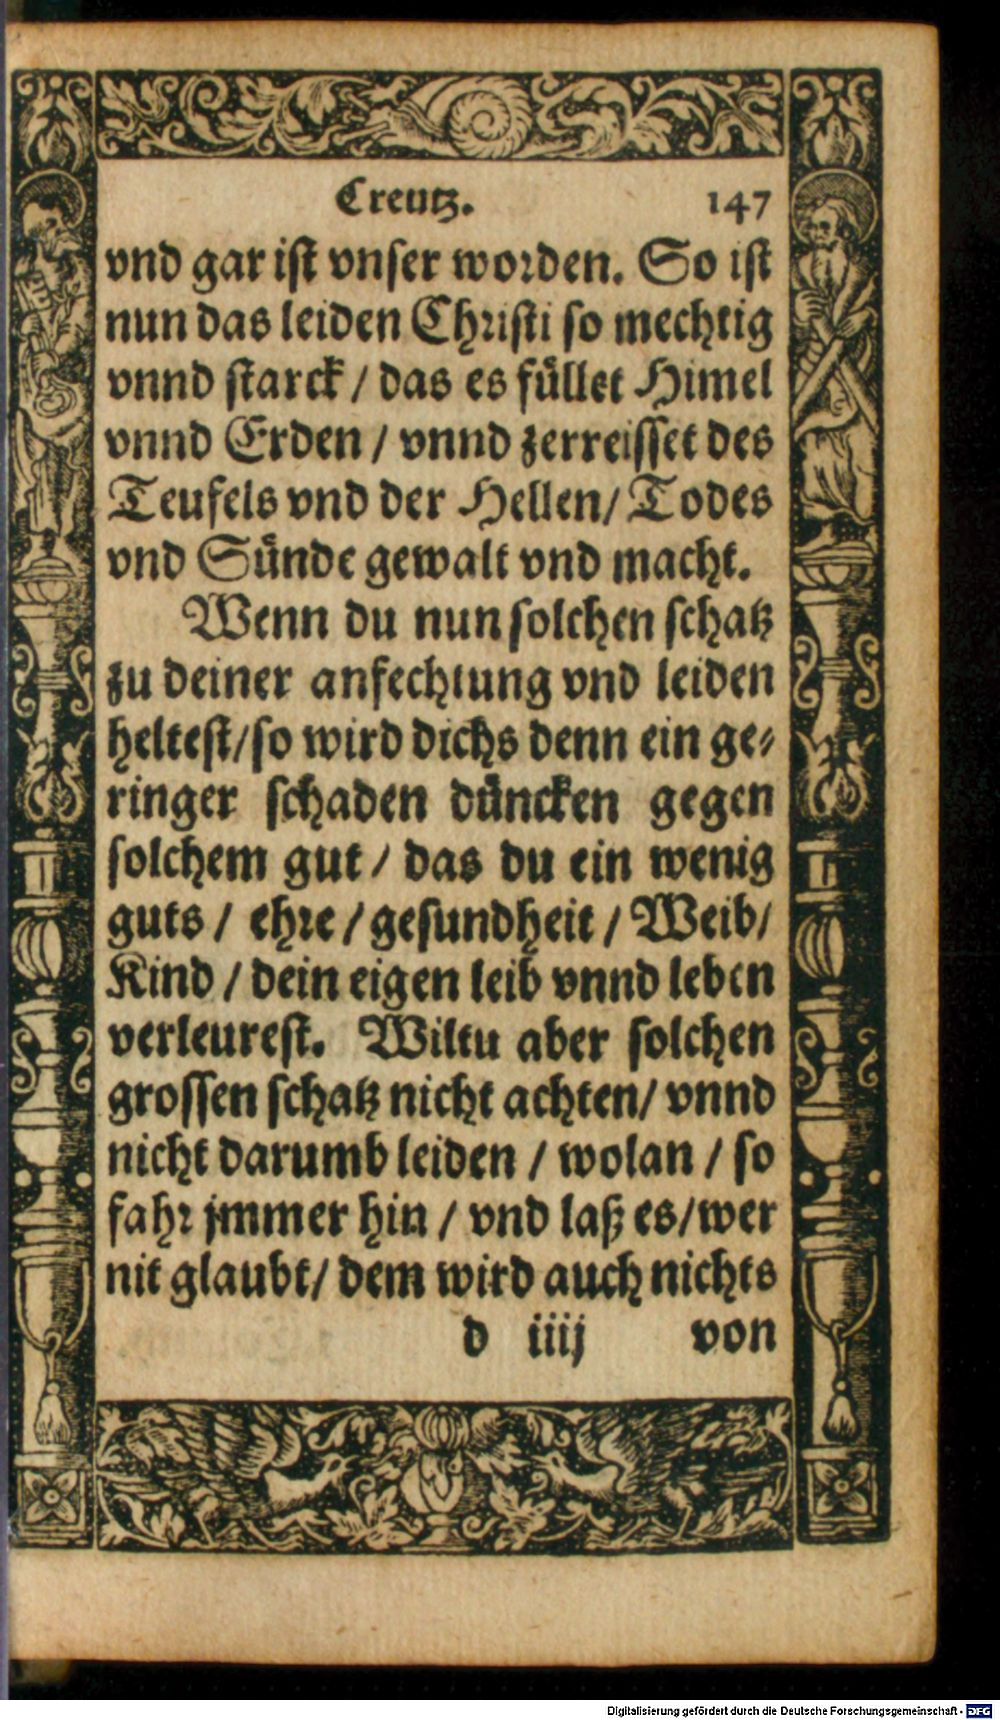 Creutz. 147
vnd gar ist vnser worden. So ist
nun das leiden Christi so mechtig
vnnd starck / das es füllet Himel
vnnd Erden / vnnd zerreisset des
Teufels vnd der Hellen / Todes
vnd Sünde gewalt vnd macht.
Wenn du nun solchen schatz
zu deiner anfechtung vnd leiden
heltest / so wird dichs denn ein ge-
ringer schaden düncken gegen
solchem gut / das du ein wenig
guts / ehre / gesundheit / Weib /
Kind / dein eigen leib vnnd leben
verleurest. Wiltu aber solchen
grossen schatz nicht achten / vnnd
nicht darumb leiden / wolan / so
fahr jmmer hin / vnd laß es / wer
nit glaubt / dem wird auch nichts
d iiij von
Digitalisierung gefördert durch die Deutsche Forschungsgemeinschaft - DFG